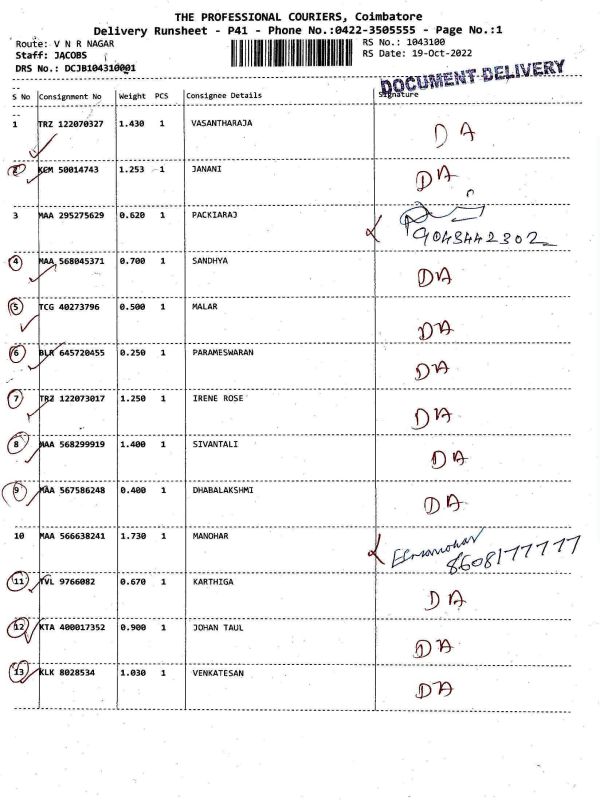 THE PROFESSIONAL COURIERS, Coimbatore
Delivery Runsheet - P41 - Phone No.:0422-3505555 - Page No.:1
Route: V N R NAGAR
RS No.: 1043100
Staff: JACOBS
RS Date: 19-Oct-2022
DRS No.: DCJB104310001
DOCUMENT DELIVERY
S No Consignment No Weight PCS Consignee Details Signature
1 TRZ 122070327 1.430 1 VASANTHARAJA DA
2 KEM 50014743 1.253 1 JANANI DA
3 MAA 295275629 0.620 1 PACKIARAJ
9043442302
4 MAA 568045371 0.700 1 SANDHYA DA
5 TCG 40273796 0.500 1 MALAR DA
6 BLR 645720455 0.250 1 PARAMESWARAN DA
7 TRZ 122073017 1.250 1 IRENE ROSE DA
8 MAA 568299919 1.400 1 SIVANTALI DA
9 MAA 567586248 0.400 1 DHABALAKSHMI DA
10 MAA 566638241 1.730 1 MANOHAR
8608177777
11 TVL 9766082 0.670 1 KARTHIGA DA
12 KTA 400017352 0.900 1 JOHAN TAUL DA
13 KLK 8028534 1.030 1 VENKATESAN DA